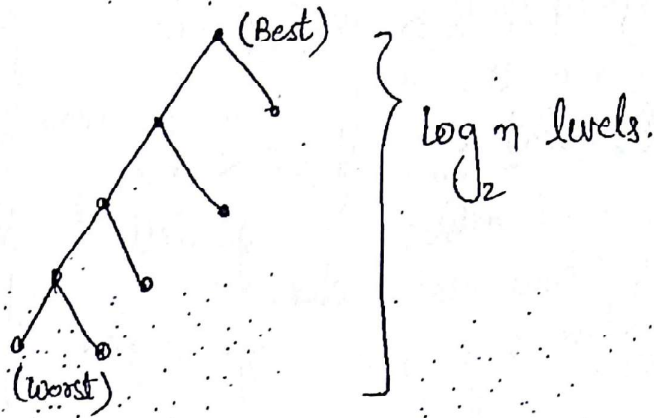 (Best)
log₂ n levels.
(Worst)